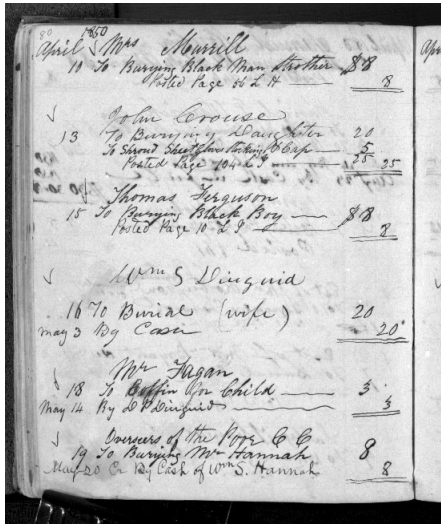 80 1850
April Mrs Murrill
10 To Burying Black Man Strother $8
Posted Page 56 L H 8
John Crouse
13 To Burying Daughter 20
To Shroud Sheet Stocking & Cap 5
Posted Page 104 L I 25 25
Thomas Ferguson
15 To Burying Black Boy $8
Posted Page 10 L I 8
Wm S Diuguid
16 To Burial (wife) 20
May 3 By Cash 20
Mr Fagan
18 To Coffin for Child 3
May 14 By D P Diuguid 3
Overseers of the Poor C C
19 To Burying Mr Hannah 8
May 20 Cr By Cash of Wm S. Hannah 8
Apr